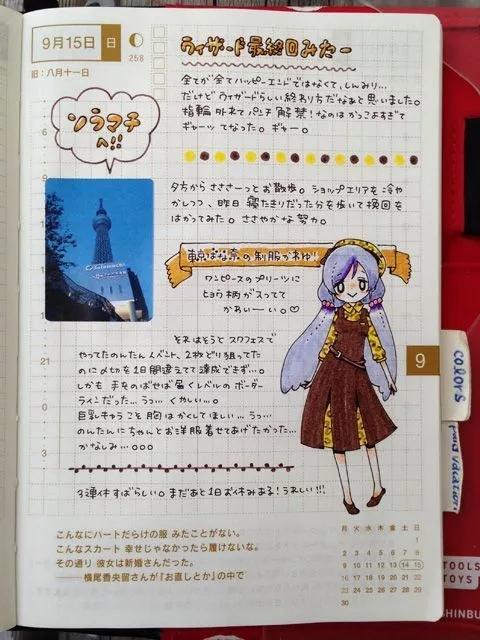 9月15日 日
258
旧：八月十一日
ウィザード最終回みたー
全てが全てハッピーエンドではなくて、しんみり...
だけどウィザードらしい終わり方だなぁと思いました。
指輪外れてパンチ解禁！なのはかっこよすぎて
ギャーッてなった。ギャー。
ソラマチ
へ!!
夕方からささーっとお散歩。ショップエリアを冷や
かしつつ、昨日寝たきりだった分を歩いて挽回を
はかってみた。ささやかな努力。
東京ばな奈の制服かわゆ！
ワンピースのプリーツに
ヒョウ柄が入ってて
かわいーい。♡
それはそうとスクフェスで
やってたのんたんイベント、2枚どり狙ってた
のに〆切を1日間違えてて達成できず...。
しかも手をのばせば届くレベルのボーダー
ラインだった...うっ...くやしい...。
巨乳きゅうこと胸はかくてほしい...うっ...
のんたんにちゃんとお洋服着せてあげたかった...
かなしみ...
3連休すばらしい。まだあと1日お休みある！うれしい!!!
6
9
12
21
0
3
9
COLOYS
vacation
こんなにハートだらけの服 みたことがない。
こんなスカート 幸せじゃなかったら履けないな。
その通り 彼女は新婚さんだった。
――横尾香央留さんが『お直しとか』の中で
月 火 水 木 金 土 日
1
2 3 4 5 6 7 8
9 10 11 12 13 14 15
16 17 18 19 20 21 22
23 24 25 26 27 28 29
30
TOOLS
TOYS
SHINBU